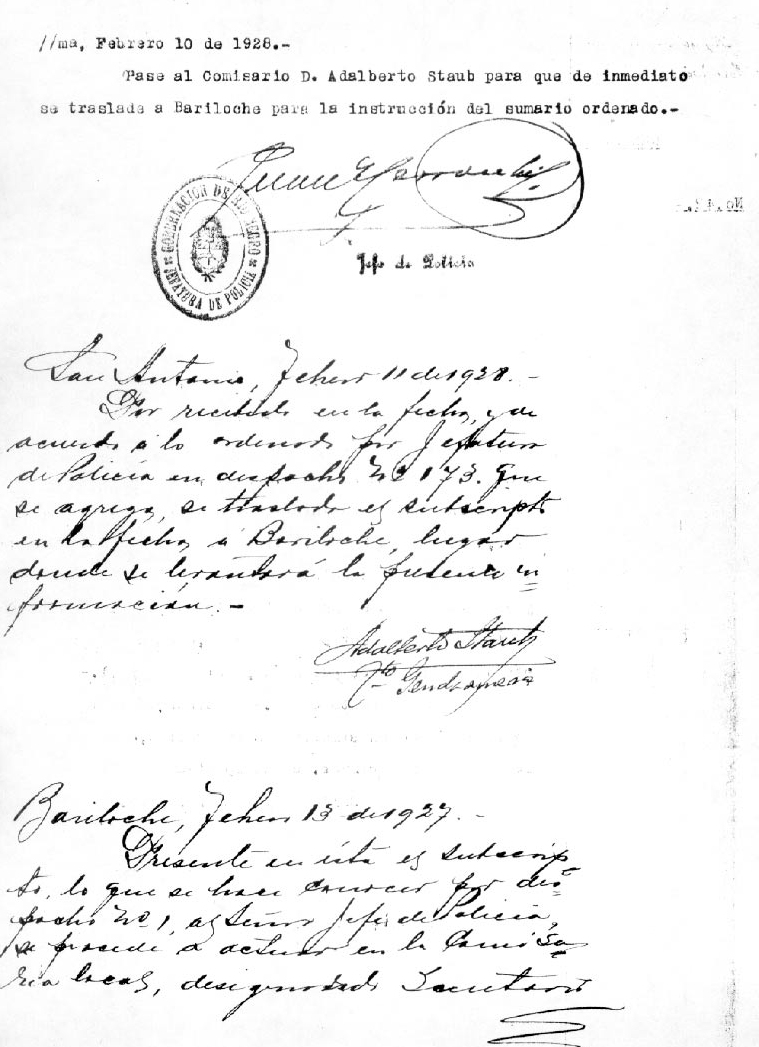 //ma, Febrero 10 de 1928.-
Pase al Comisario D. Adalberto Staub para que de inmediato
se traslade a Bariloche para la instrucción del sumario ordenado.-
GOBERNACION DE RIO NEGRO
JEFATURA DE POLICIA
Jefe de Policia
San Antonio, Febrero 11 de 1928.-
Por recibido en la fecha, y de
acuerdo á lo ordenado por Jefatura
de Policía en despacho Nº 173. que
se agrega, se traslada el subscripto
en la fecha, á Bariloche, lugar
donde se levantará la presente in=
formación.-
Adalberto Staub
Bariloche, Febrero 13 de 1927.-
Presente en ésta el subscrip=
to, lo que se hace conocer por des=
pacho Nº 1, al Señor Jefe de Policía,
se procede a actuar en la Comisa=
ria local, designando Secretario